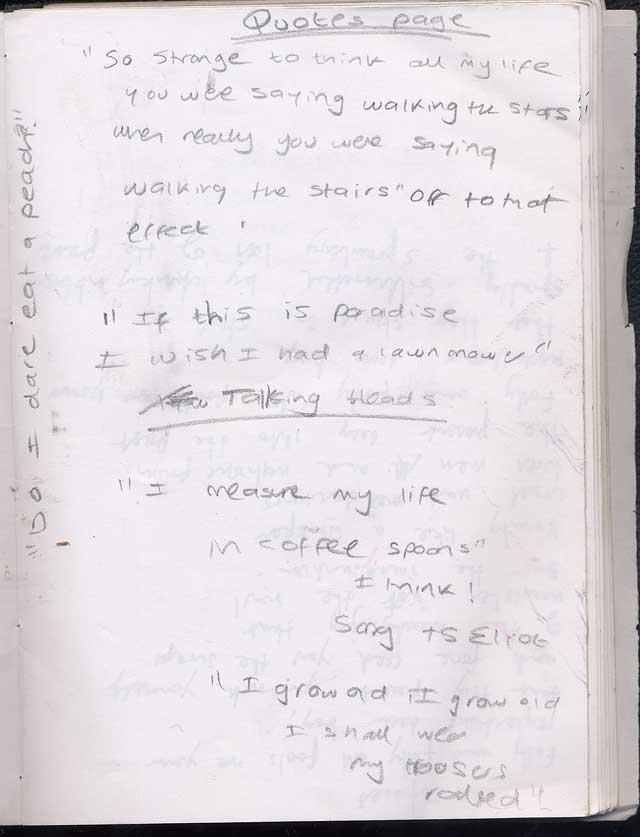 Quotes page
"So strange to think all my life
you wee saying walking the stars"
when really you were saying
walking the stairs" Off to that
effect '
"If this is paradise
I wish I had a lawnmower"
Talking Heads
"I measure my life
in coffee spoons"
I think!
Sorry TS Eliot
"I grow old I grow old
I shall wear
my
rolled"
"Do I dare eat a peach?"